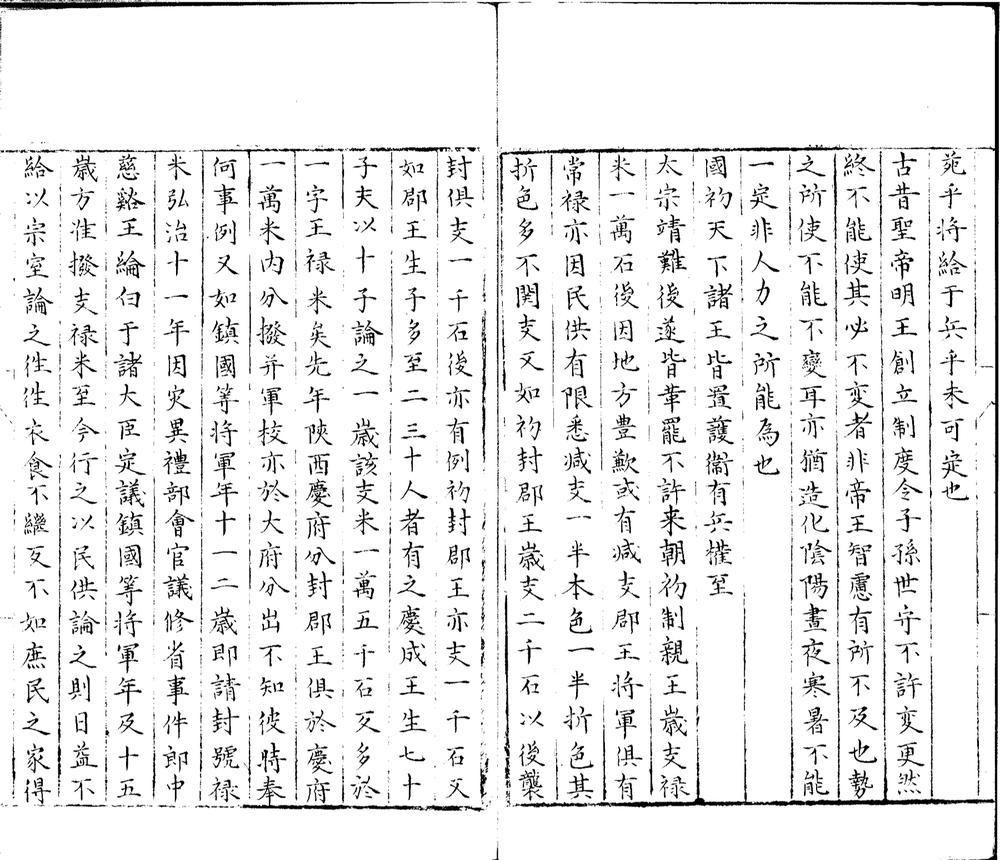 苑乎将給于兵乎未可定也
古昔聖帝明王創立制度令子孫世守不許変更然
終不能使其必不変者非帝王智慮有所不及也勢
之所使不能不變耳亦猶造化陰陽晝夜寒暑不能
一定非人力之所能為也
國初天下諸王皆置護衞有兵權至
太宗靖難後遂皆革罷不許来朝初制親王歲支禄
米一萬石後因地方豊歉或有減支郡王将軍俱有
常禄亦因民供有限悉減支一半本色一半折色其
折色多不関支又如初封郡王歲支二千石以後襲
封俱支一千石後亦有例初封郡王亦支一千石又
如郡王生子多至二三十人者有之慶成王生七十
子夫以十子論之一歲該支米一萬五千石又多於
一字王禄米矣先年陝西慶府分封郡王俱於慶府
一萬米内分撥并軍校亦於大府分出不知彼時奉
何事例又如鎮國等将軍年十一二歲即請封號禄
米弘治十一年因災異禮部會官議修省事件郎中
慈谿王綸白于諸大臣定議鎮國等将軍年及十五
歲方准撥支禄米至今行之以民供論之則日益不
給以宗室論之往往衣食不繼又不如庶民之家得